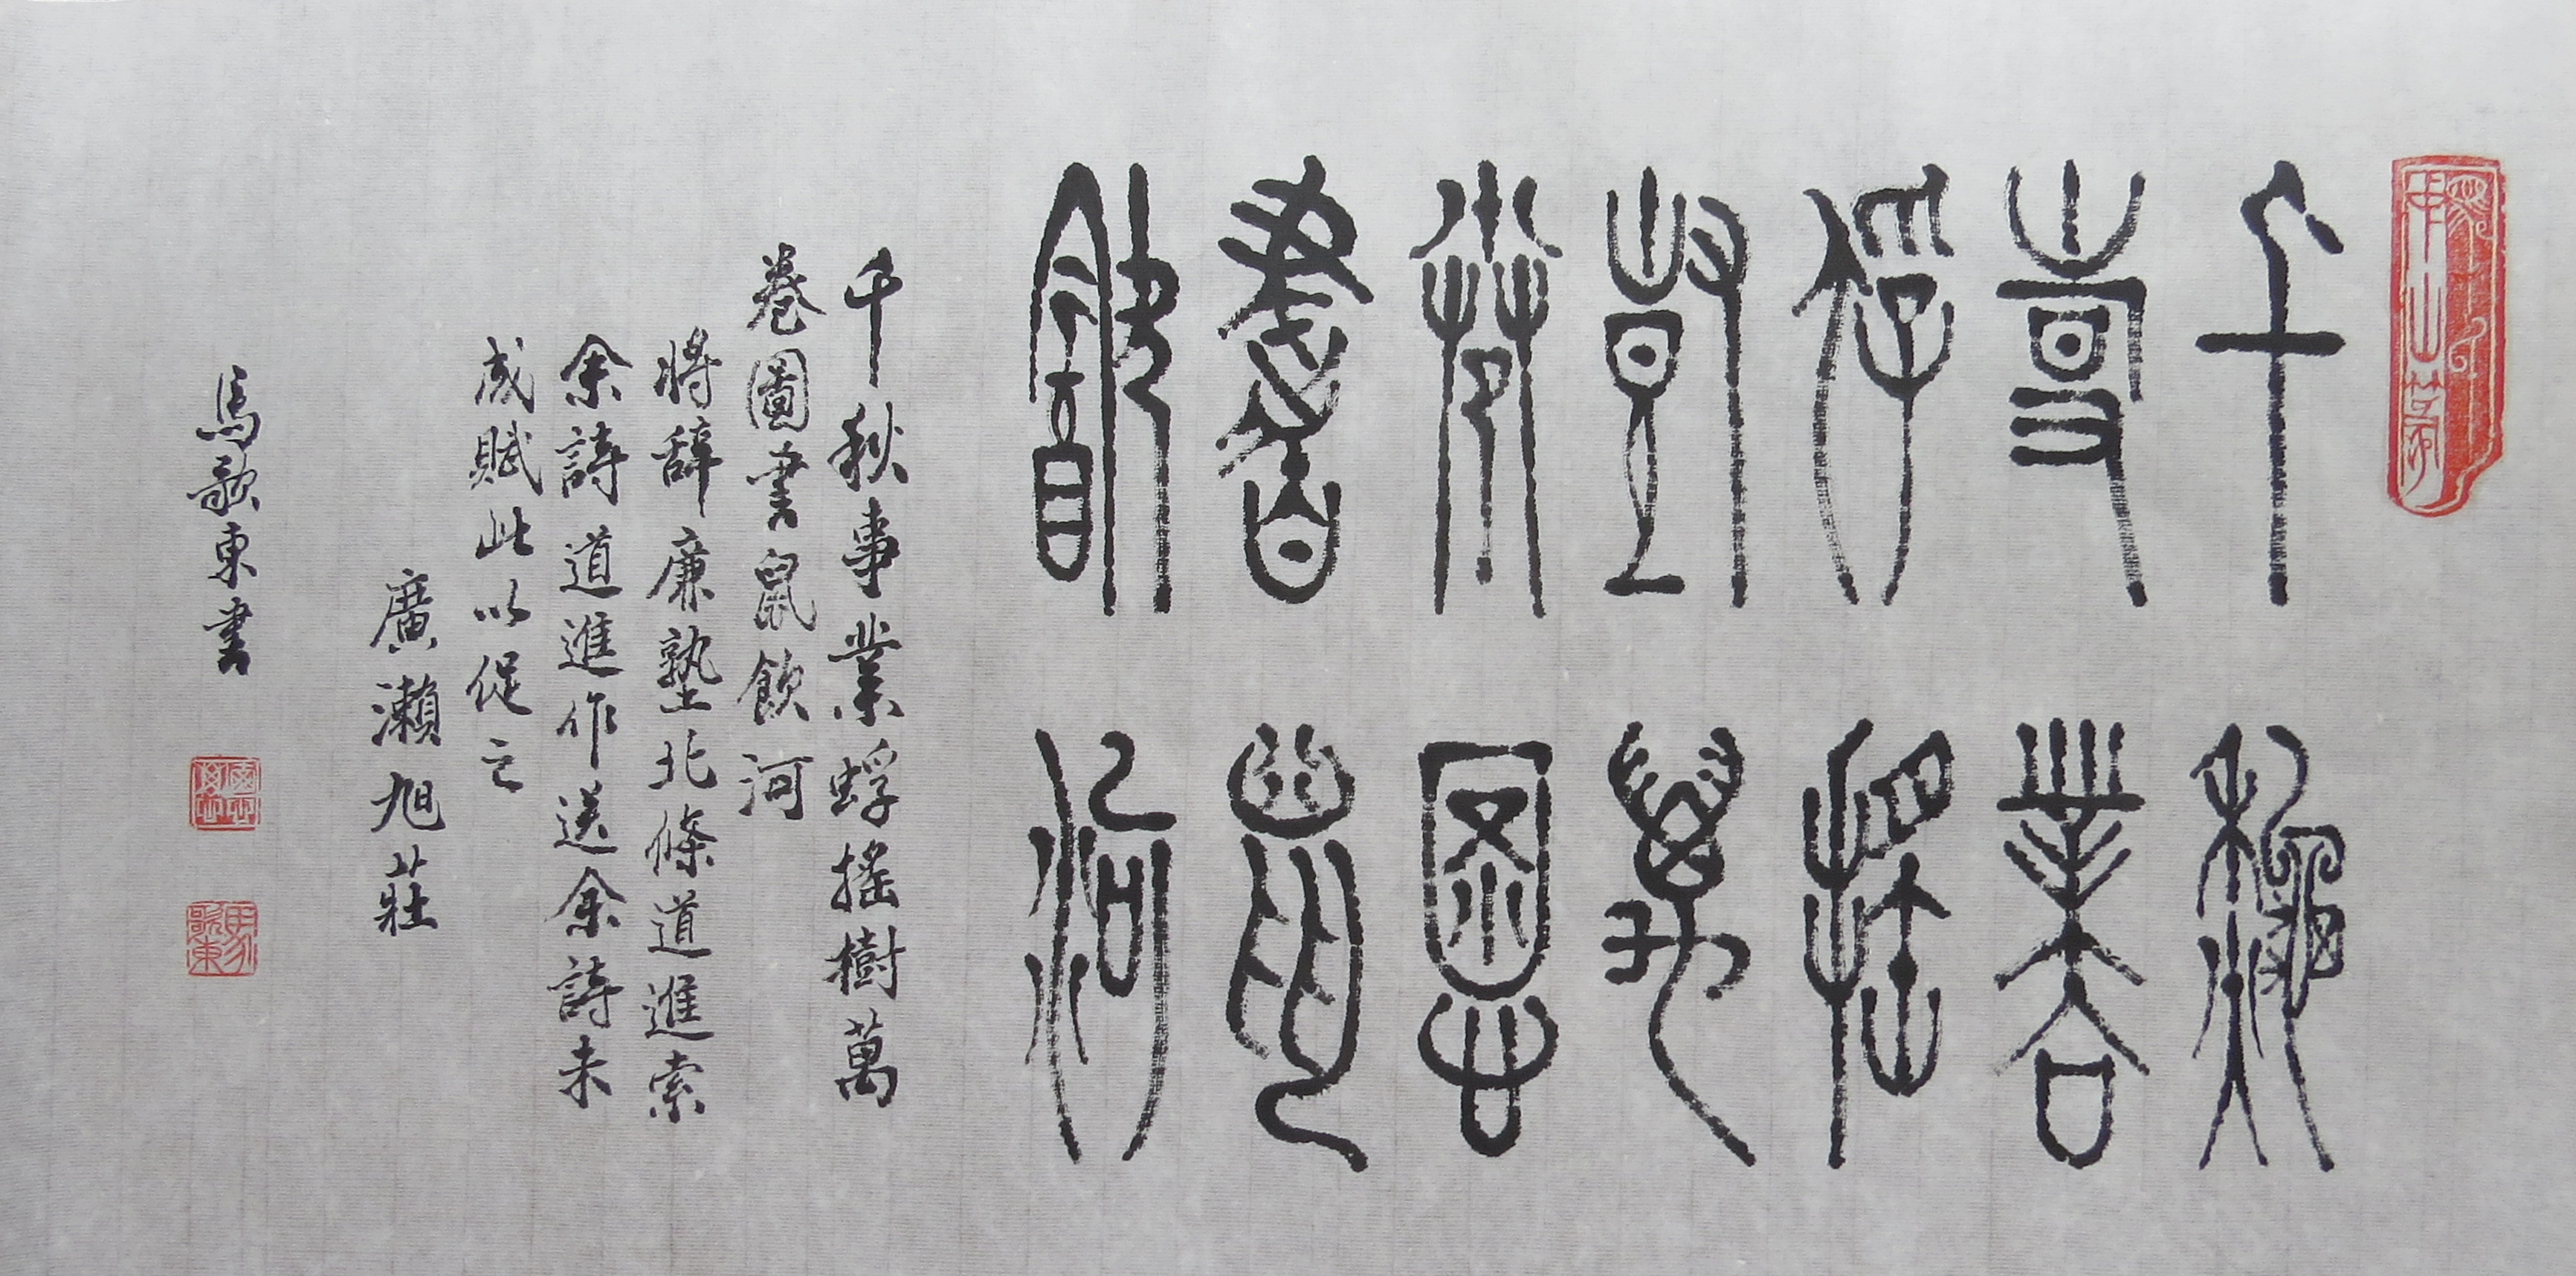 千秋
事業
蜉搖
樹萬
卷圖
書鼠
飲河
千秋事業蜉搖樹萬
卷圖書鼠飲河
將辭廉塾北條道進索
余詩道進作送余詩未
成賦此以促之
廣瀨旭莊
馬歌東書
馬歌東